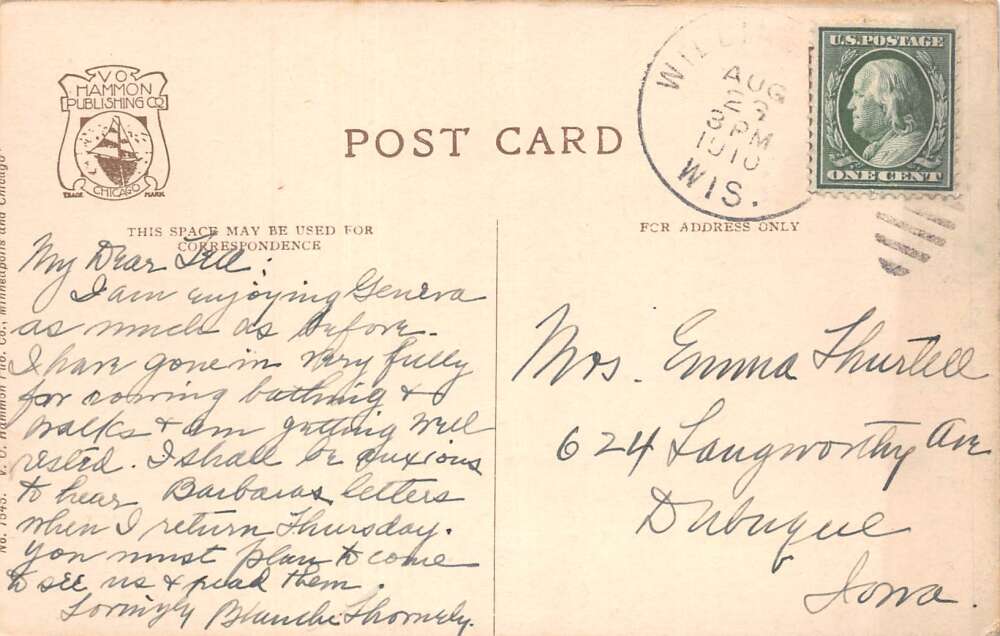 V O
HAMMON
PUBLISHING CO
CHICAGO
TRADE MARK
POST CARD
THIS SPACE MAY BE USED FOR
CORRESPONDENCE
FOR ADDRESS ONLY
WILLI
AUG
3 PM
1910
WIS.
U.S.POSTAGE
ONE CENT
My Dear
I am enjoying Geneva
as much as before.
I have gone in very fully
for rowing bathing &
walks & am getting well
rested. I shall be anxious
to hear Barbaras letters
when I return Thursday.
You must plan to come
to see us & read them.
Lovingly Blanche Thornely.
Mrs. Emma Thurtell
624 Langworthy Ave
Dubuque
Iowa.
No. 1543. V. O. Hammon Pub. Co., Minneapolis and Chicago